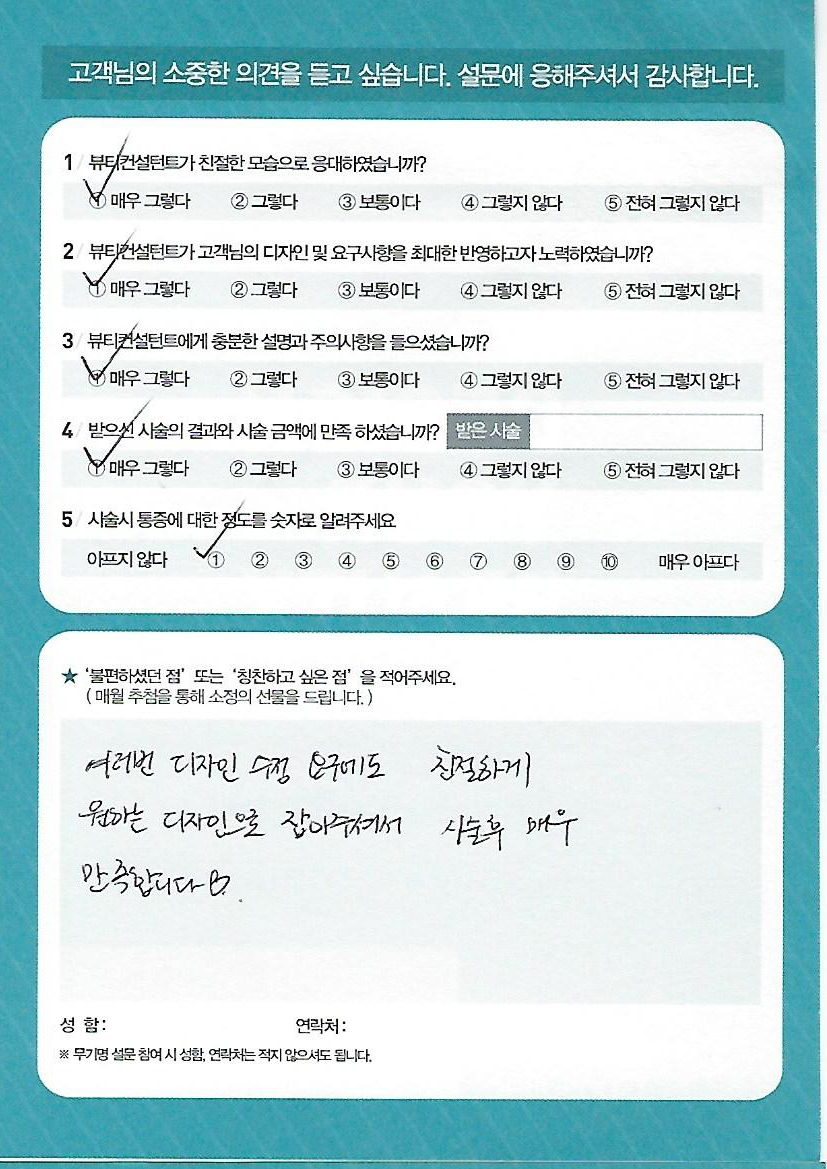 고객님의 소중한 의견을 듣고 싶습니다. 설문에 응해주셔서 감사합니다.
1 / 뷰티컨설턴트가 친절한 모습으로 응대하였습니까?
① 매우 그렇다 ② 그렇다 ③ 보통이다 ④ 그렇지 않다 ⑤ 전혀 그렇지 않다
2 / 뷰티컨설턴트가 고객님의 디자인 및 요구사항을 최대한 반영하고자 노력하였습니까?
① 매우 그렇다 ② 그렇다 ③ 보통이다 ④ 그렇지 않다 ⑤ 전혀 그렇지 않다
3 / 뷰티컨설턴트에게 충분한 설명과 주의사항을 들으셨습니까?
① 매우 그렇다 ② 그렇다 ③ 보통이다 ④ 그렇지 않다 ⑤ 전혀 그렇지 않다
4 / 받으신 시술의 결과와 시술 금액에 만족 하셨습니까? 받은 시술
① 매우 그렇다 ② 그렇다 ③ 보통이다 ④ 그렇지 않다 ⑤ 전혀 그렇지 않다
5 / 시술시 통증에 대한 정도를 숫자로 알려주세요
아프지 않다 ① ② ③ ④ ⑤ ⑥ ⑦ ⑧ ⑨ ⑩ 매우 아프다
★ '불편하셨던 점' 또는 '칭찬하고 싶은 점' 을 적어주세요.
( 매월 추첨을 통해 소정의 선물을 드립니다. )
여러번 디자인 수정 요구에도 친절하게
원하는 디자인으로 잡아주셔서 시술후 매우
만족합니다
성 함 : 연락처 :
※ 무기명 설문 참여 시 성함, 연락처는 적지 않으셔도 됩니다.